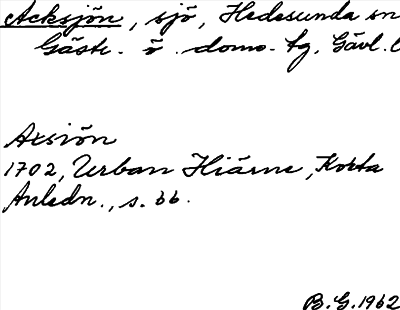 Acksjön, sjö, Hedesunda sn
Gästr. ö. doms. tg, Gävl. l
Axsiön
1702, Urban Hiärne, Korta
Anledn., s. 66.
B.G. 1962